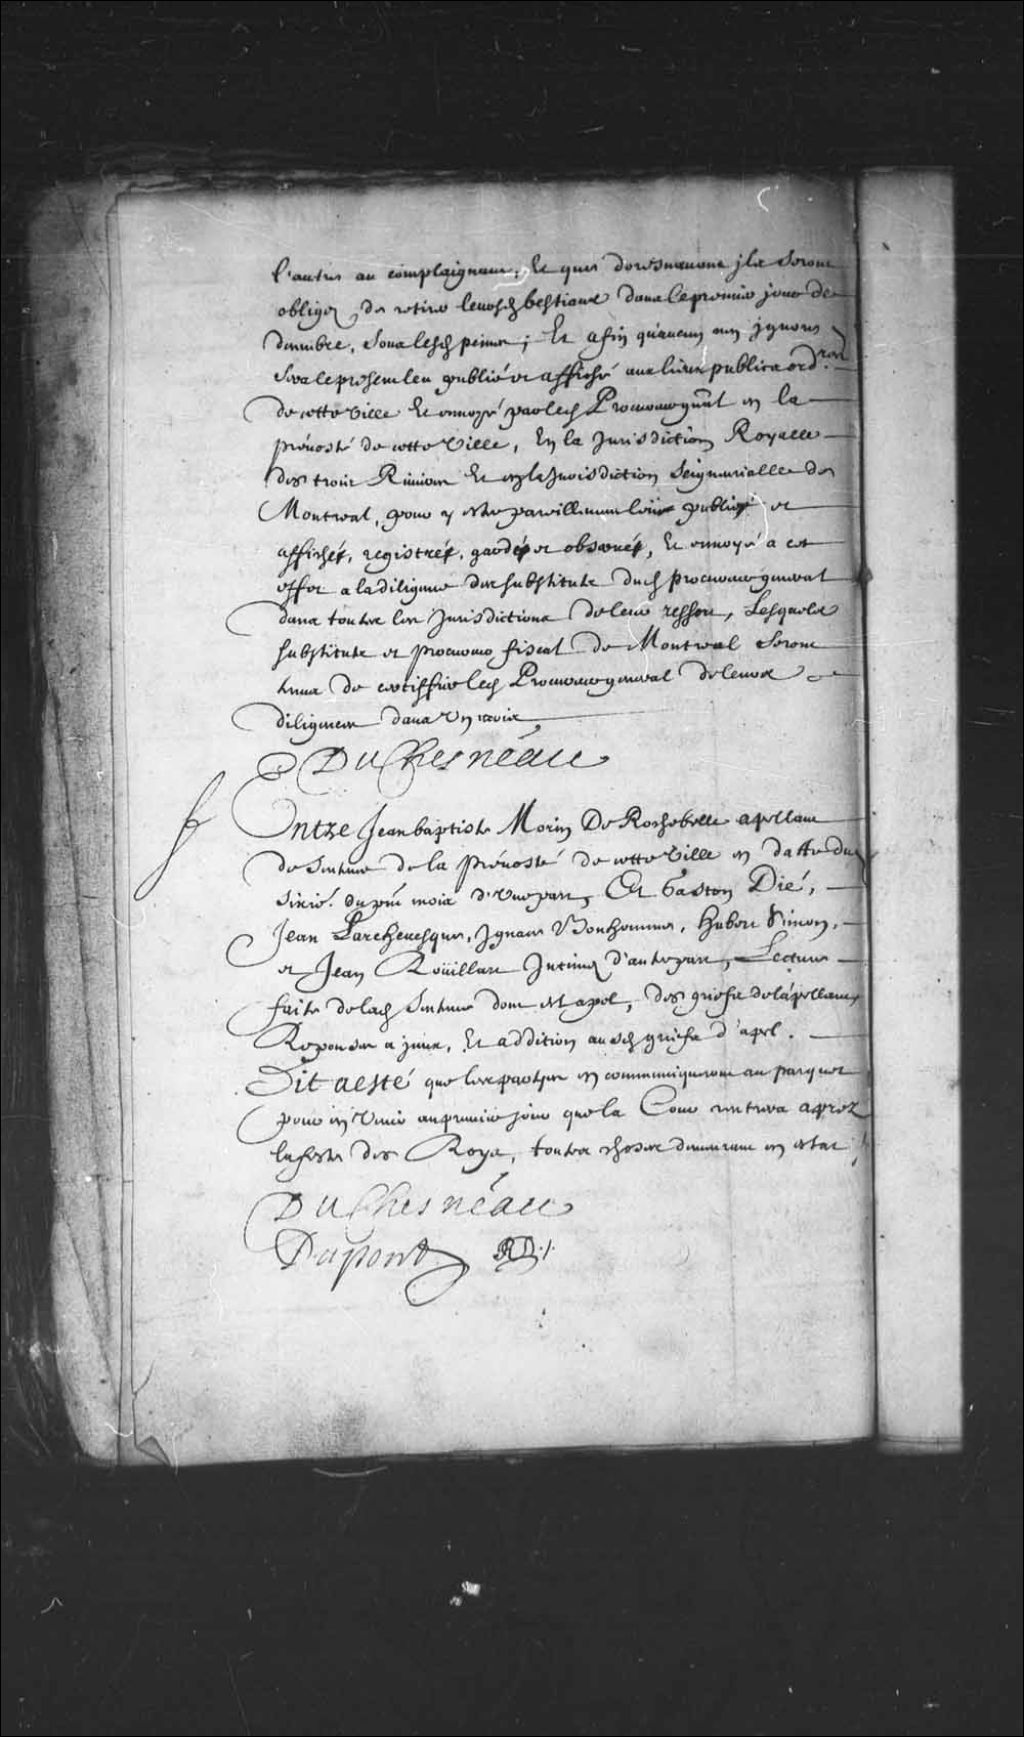 l'autre au complaignant, Et que doresnavant jls seront
obligez de retirer leursd. bestiaux dans le premier jour de
decembre, Soubs lesd. peines; Et afin qu'aucun n'en jgnore
Sera le present leu publié et affiché aux lieux publics ord.res
de cette Ville Et envoyé par led. Procureur gnal en la
prévosté de cette Ville, En la Jurisdiction Royalle
des trois Rivieres Et en la Jurisdiction Seigneurialle de
Montreal, pour y estre pareillement leu publié et
affiché, registré, gardé et observé, Et envoyé a cet
effet a la diligence des substituts dud. procureur general
dans toutes les Jurisdictions de leur ressort, Lesquels
substituts et procureur fiscal de Montreal Seront
tenus de certiffier led. Procureur general de leurs
diligences dans Un mois
DuChesneau
Entre Jean baptiste Morin De Rochebelle apellant
de Sentence de la prévosté de cette Ville en datte du
Sixie. du pnt mois d'Une part, Et Gaston Dié,
Jean Larcheuesque, Jgnace Bonhomme, Hubert Simon,
et Jean Roüillard Intimez d'autre part, Lecture
faite de lad. Sentence dont est apel, des griefs de l'apellant,
Reponses a jceux, Et addition ausd. griefs d'apel.
Dit a esté que les parties en communiqueront au parquet
pour en Venir au premier jour que la Cour rentrera aprez
la feste des Roys, toutes choses demeurant en estat
DuChesneau
Dupont RD